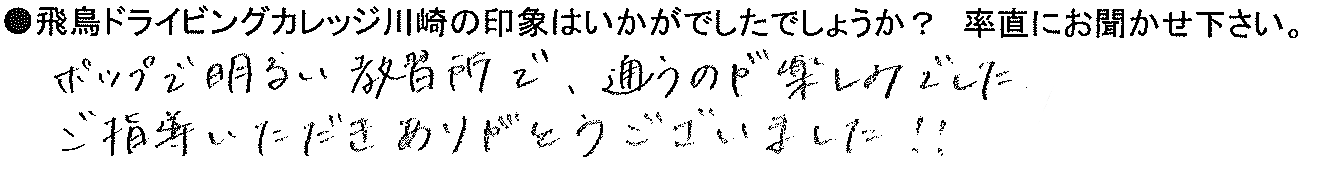 ●飛鳥ドライビングカレッジ川崎の印象はいかがでしたでしょうか？　率直にお聞かせ下さい。
ポップで明るい教習所で、通うのが楽しみでした
ご指導いただきありがとうございました!!